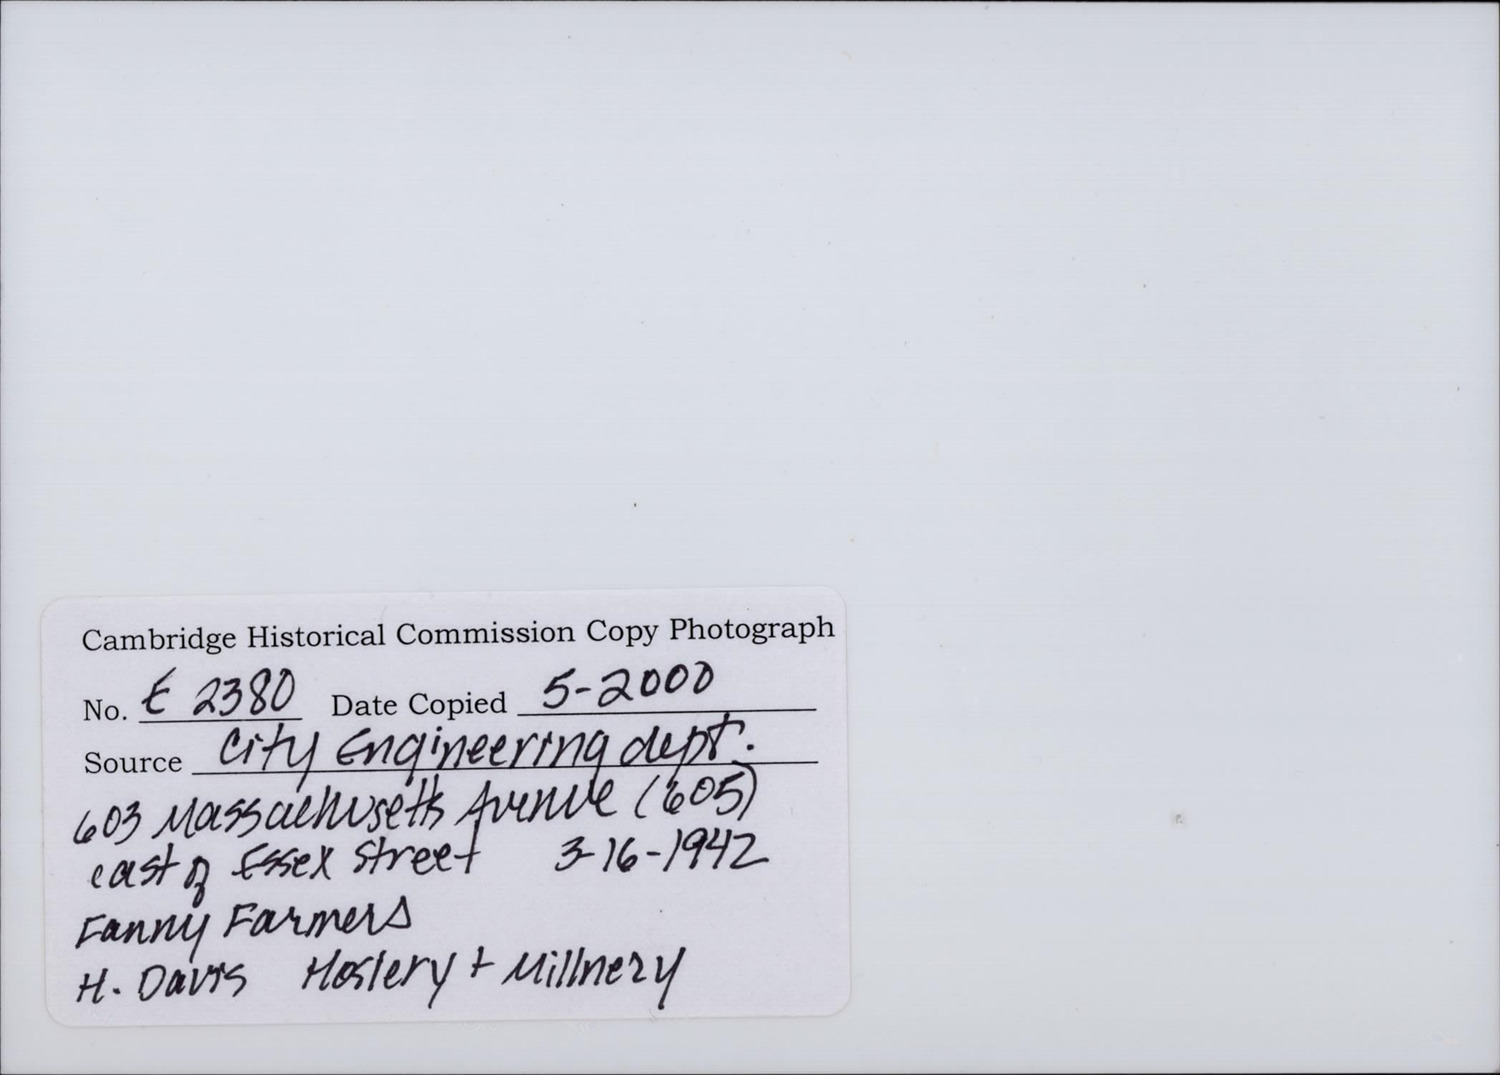 Cambridge Historical Commission Copy Photograph
No. E 2380 Date Copied 5-2000
Source City Engineering dept.
603 Massachusetts Avenue (605)
east of Essex Street 3-16-1942
Fanny Farmers
H. Davis Hosiery + Millnery